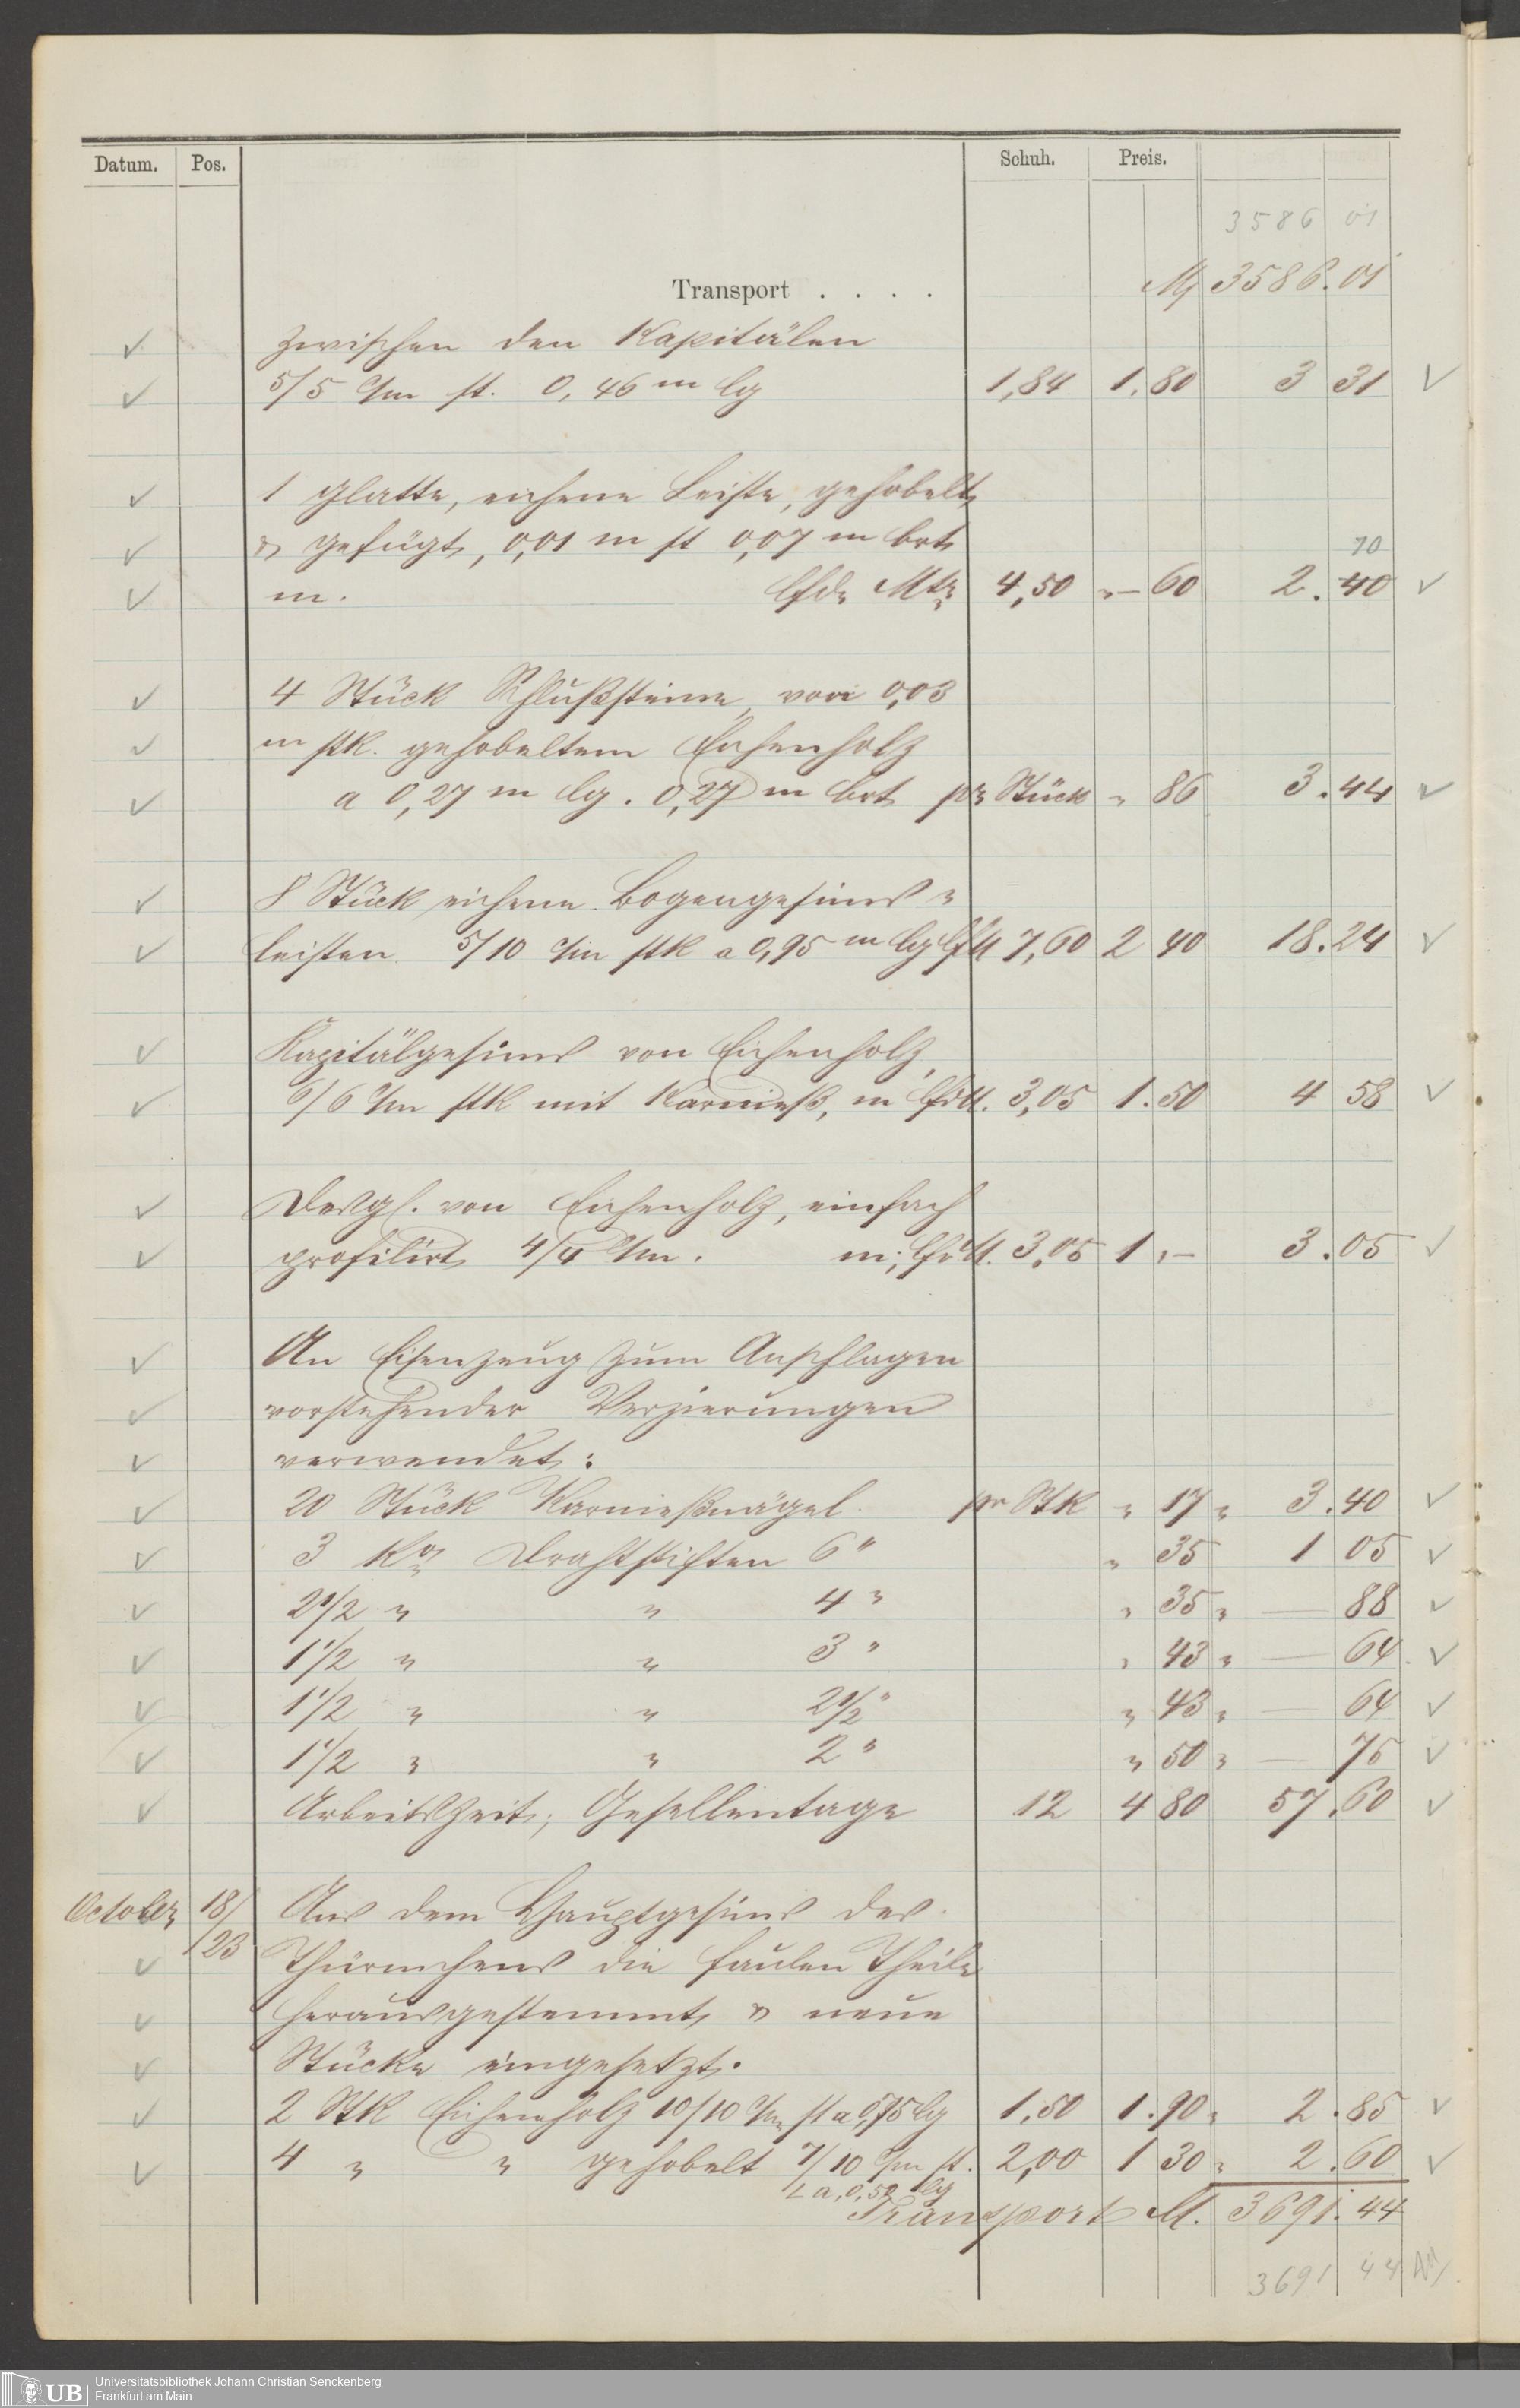 Datum. Pos. Schuh. Preis.
3586 01
Transport . . . . M 3586.01
zwischen den Kapitälen
5/5 c/m st. 0,46 m lg 1,84 1.80 3 31
1 glatte, eichene Leiste, gehobelt
& gefügt, 0,01 m st 0,07 m brt
10
m. lfde Mtr 4,50 „— 60 2.40
4 Stück Schlußsteine, von 0,03
m stk. gehobeltem Eichenholz
a 0,27 m lg. 0,27 m brt pr Stück „ 86 3.44
8 Stück eichene Bogengesims-
leisten 5/10 c/m stk a 0,95 m lg lfM 7,60 2 40 18.24
Kapitälgesims von Eichenholz,
6/6 c/m stk mit Karnieß, m lfdM. 3,05 1.50 4 58
Desgl. von Eichenholz, einfach
profilirt 4/4 c/m. m; lfdM. 3,05 1,— 3.05
An Eisenzeug zum Anschlagen
vorstehender Verzierungen
verwendet:
20 Stück Karnießnägel. pr Stk „ 17 „ 3.40
3 Ko Drahtstiften 6" „ 35 1 05
2 1/2 „ „ 4" „ 35 „ — 88
1 1/2 „ „ 3" „ 43 „ — 64
1 1/2 „ „ 2 1/2" „ 43 „ — 64
1 1/2 „ „ 2" „ 50 „ — 75
Arbeitszeit; Gesellentage 12 4 80 57.60
October 18/ Aus dem Hauptgesims des
/23 Thürmchens die faulen Theile
herausgestemmt & neue
Stücke eingesetzt.
2 Stk Eichenholz 10/10 c/m st a 0,75 lg 1,50 1.90 „ 2.85
4 „ „ gehobelt 7/10 c/m st. 2,00 1 30 „ 2.60
a 0,50 lg
Transport M. 3691.44
3691 44
UB Universitätsbibliothek Johann Christian Senckenberg
Frankfurt am Main